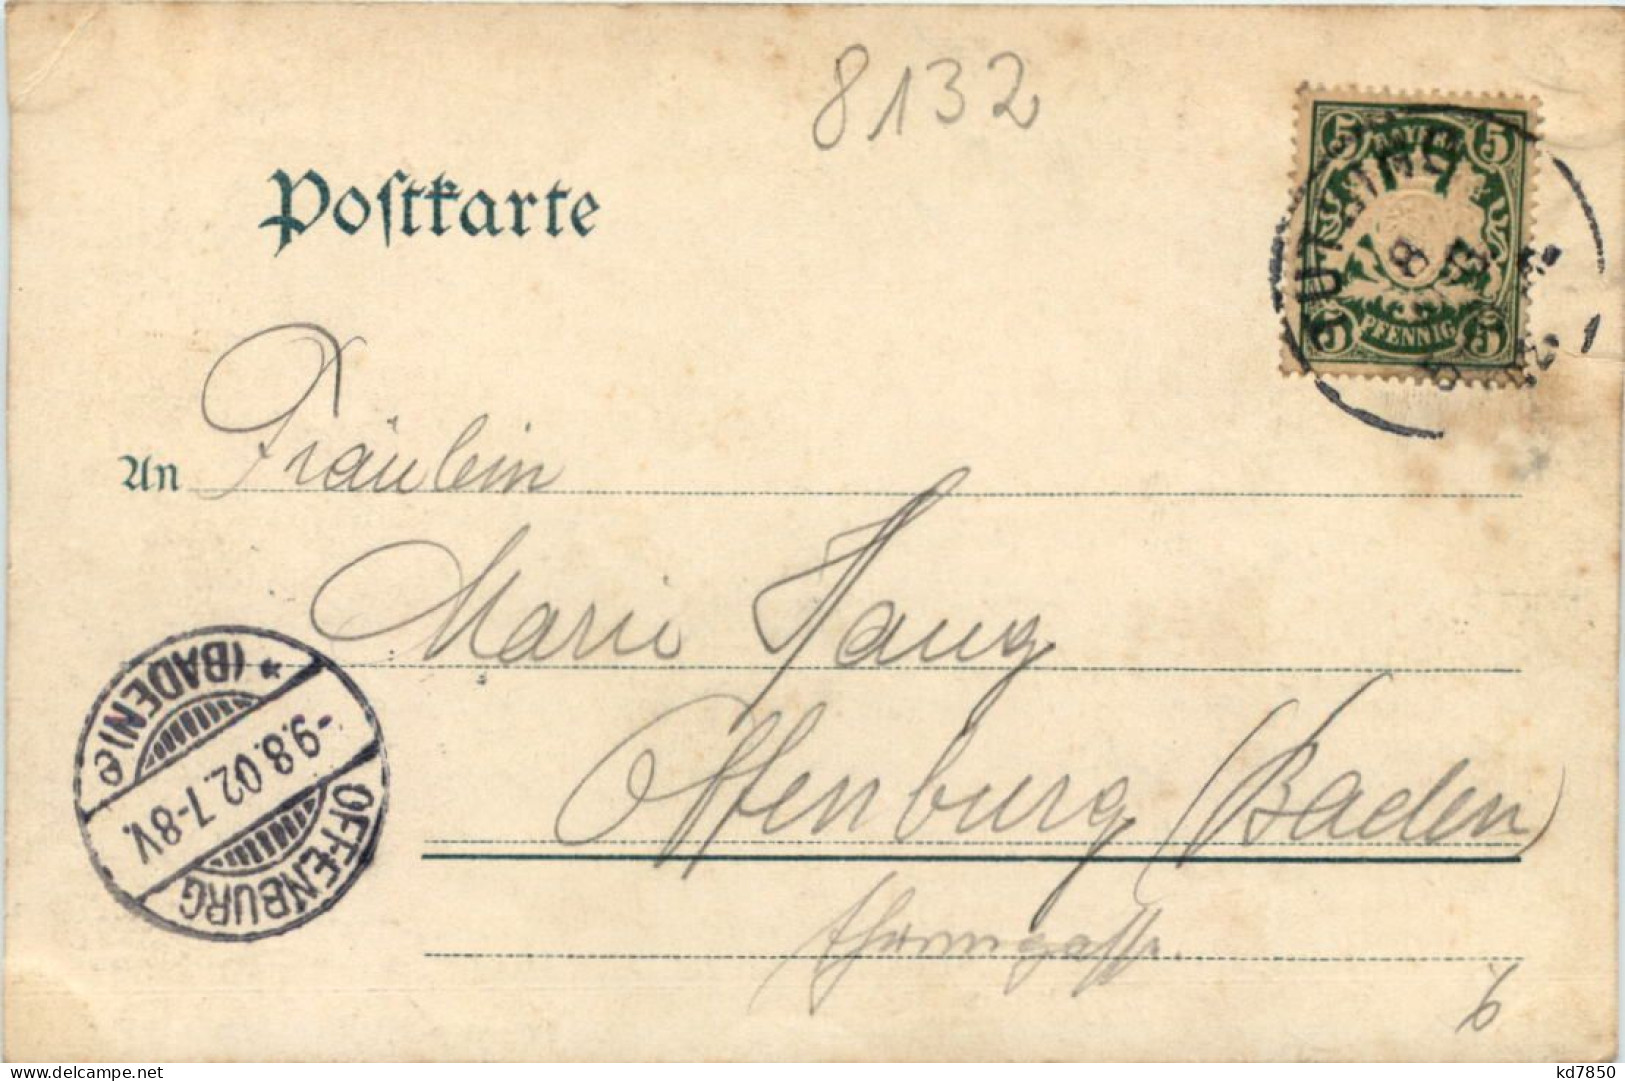 8132
Postkarte
5 BAYERN 5
5 PFENNIG 5
TUTZING
8
An Fräulein
Marie Haug
Offenburg (Baden)
* (BADEN) e
-9.8.02.7-8V.
OFFENBURG
kd7850